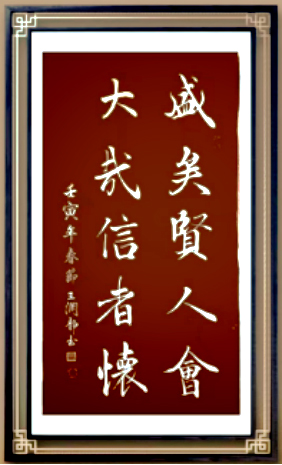 盛矣賢人會
大哉信者懷
壬寅年春節王潤郁書